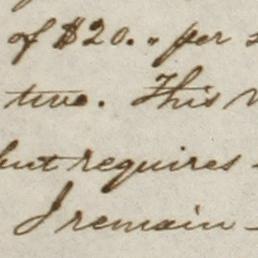 of $20.,, per
tive. This
but requires
I remain